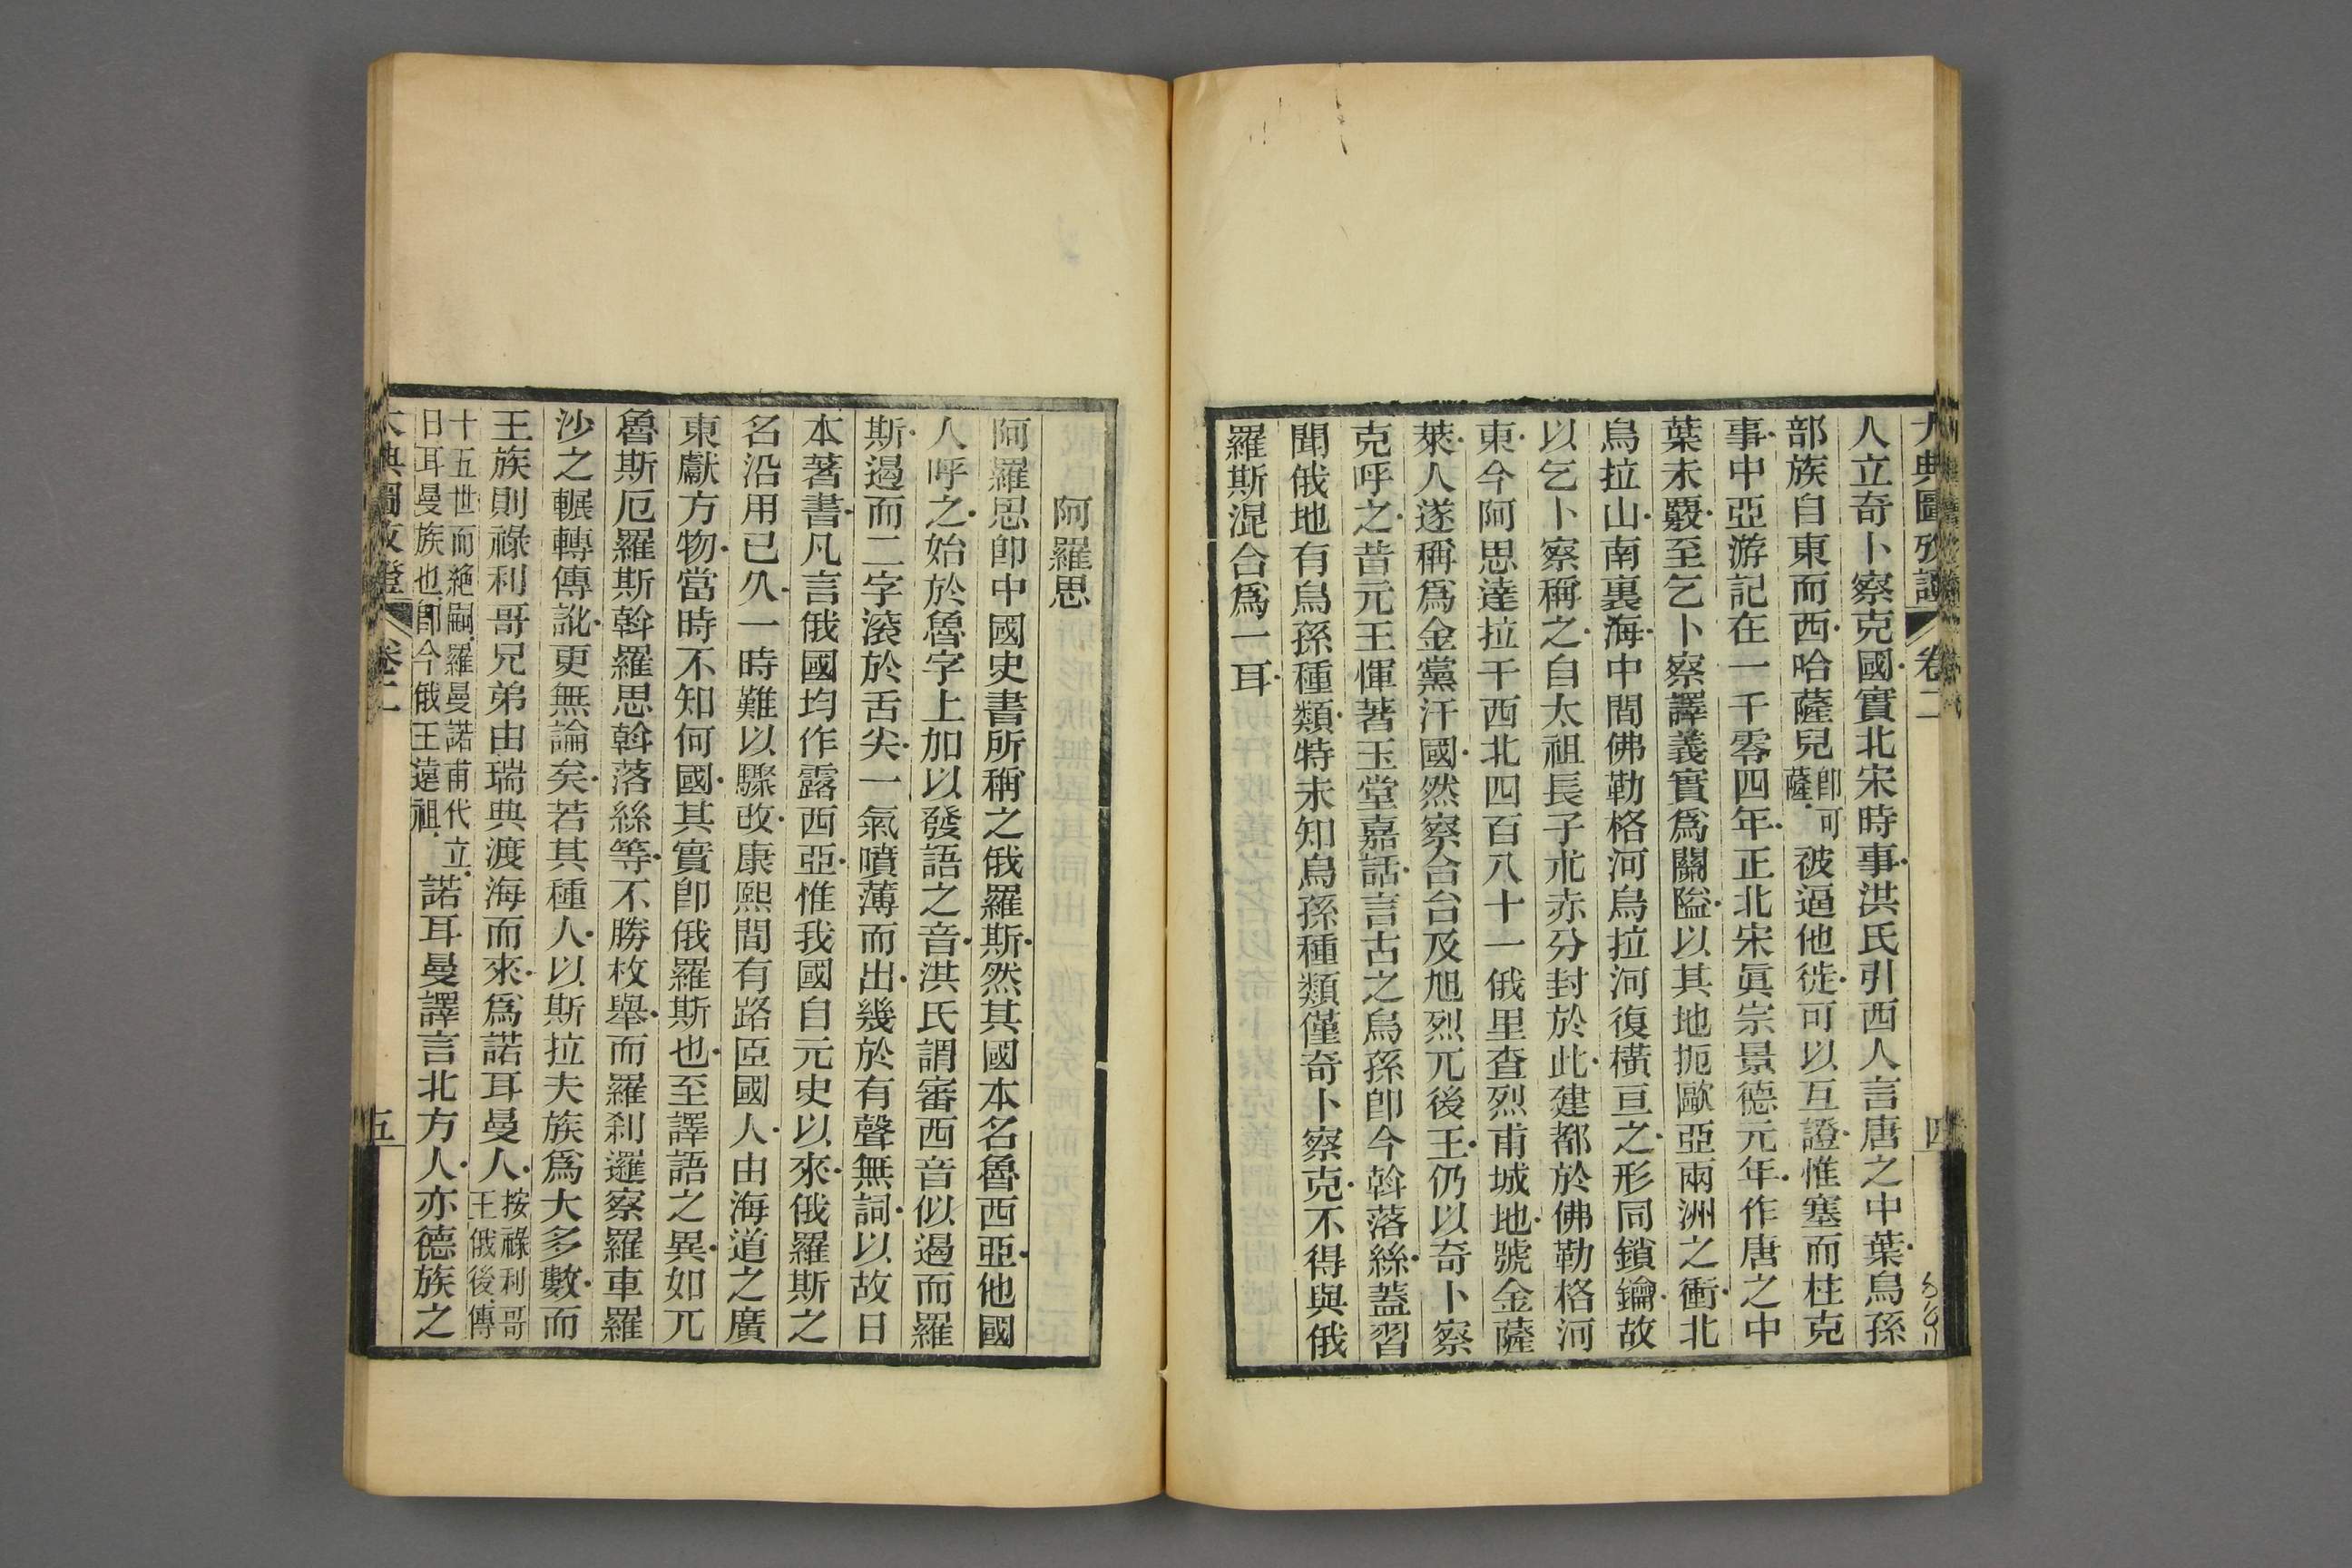 大典圖攷證 卷二 四
人立奇卜察克國實北宋時事洪氏引西人言唐之中葉烏孫
部族自東而西哈薩兒卽可薩被逼他徙可以互證惟塞而柱克
事中亞游記在一千零四年正北宋眞宗景德元年作唐之中
葉未覈至乞卜察譯義實爲關隘以其地扼歐亞兩洲之衝北
烏拉山南裏海中間佛勒格河烏拉河復橫亘之形同鎖鑰故
以乞卜察稱之自太祖長子朮赤分封於此建都於佛勒格河
東今阿思達拉干西北四百八十一俄里查烈甫城地號金薩
萊人遂稱爲金黨汗國然察合台及旭烈兀後王仍以奇卜察
克呼之昔元王惲著玉堂嘉話言古之烏孫卽今斡落絲蓋習
聞俄地有烏孫種類特未知烏孫種類僅奇卜察克不得與俄
羅斯混合爲一耳
阿羅思
阿羅思卽中國史書所稱之俄羅斯然其國本名魯西亞他國
人呼之始於魯字上加以發語之音洪氏謂審西音似遏而羅
斯遏而二字滚於舌尖一氣噴薄而出幾於有聲無詞以故日
本著書凡言俄國均作露西亞惟我國自元史以來俄羅斯之
名沿用已久一時難以驟改康熙間有路臣國人由海道之廣
東獻方物當時不知何國其實卽俄羅斯也至譯語之異如兀
魯斯厄羅斯斡羅思斡落絲等不勝枚舉而羅刹邏察羅車羅
沙之輾轉傳訛更無論矣若其種人以斯拉夫族爲大多數而
王族則祿利哥兄弟由瑞典渡海而來爲諾耳曼人按祿利哥王俄後傳
十五世而絕嗣羅曼諾甫代立日耳曼族也卽今俄王遠祖諾耳曼譯言北方人亦德族之
大典圖攷證 卷二 五